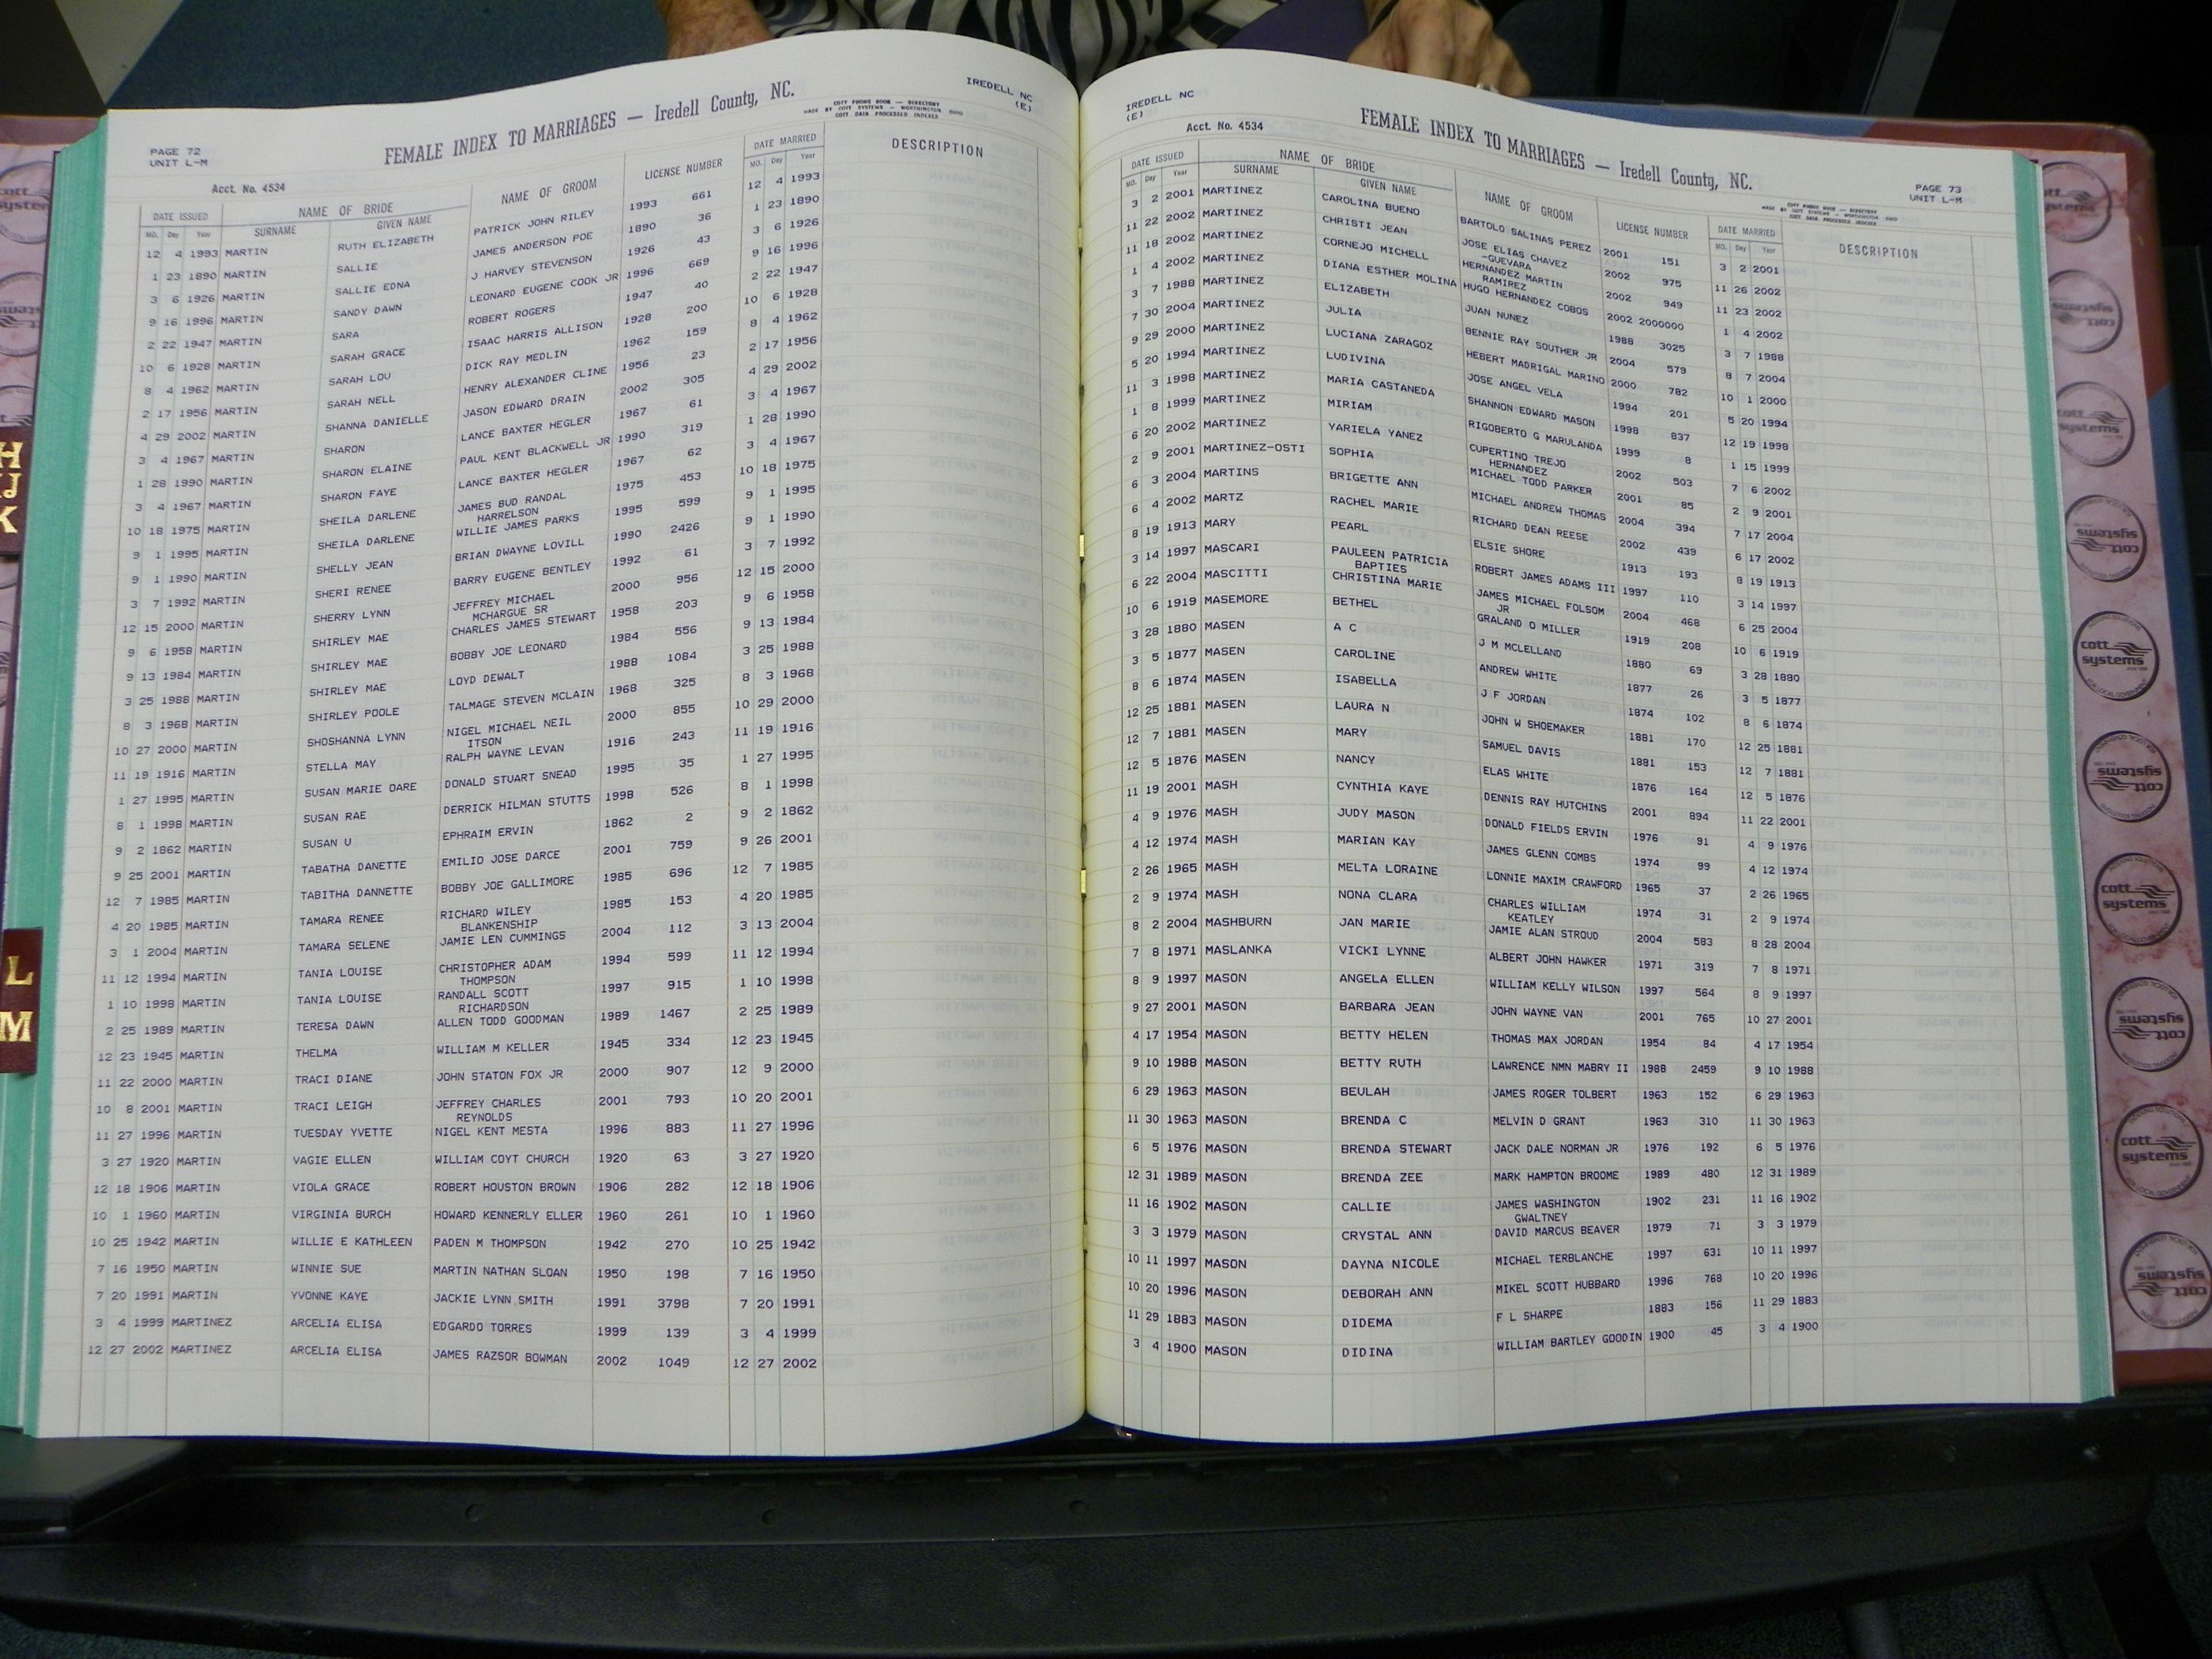 PAGE 72
UNIT L-M
FEMALE INDEX TO MARRIAGES — Iredell County, NC.
COTT PHONE BOOK — DIRECTORY
MADE BY COTT SYSTEMS — WORTHINGTON OHIO
COTT DATA PROCESSED INDEXES
IREDELL NC
(E)
Acct. No. 4534
DATE ISSUED NAME OF BRIDE NAME OF GROOM LICENSE NUMBER DATE MARRIED DESCRIPTION
MO. Day Year SURNAME GIVEN NAME MO. Day Year
12 4 1993 MARTIN RUTH ELIZABETH PATRICK JOHN RILEY 1993 661 12 4 1993
1 23 1890 MARTIN SALLIE JAMES ANDERSON POE 1890 36 1 23 1890
3 6 1926 MARTIN SALLIE EDNA J HARVEY STEVENSON 1926 43 3 6 1926
9 16 1996 MARTIN SANDY DAWN LEONARD EUGENE COOK JR 1996 669 9 16 1996
2 22 1947 MARTIN SARA ROBERT ROGERS 1947 40 2 22 1947
10 6 1928 MARTIN SARAH GRACE ISAAC HARRIS ALLISON 1928 200 10 6 1928
8 4 1962 MARTIN SARAH LOU DICK RAY MEDLIN 1962 159 8 4 1962
2 17 1956 MARTIN SARAH NELL HENRY ALEXANDER CLINE 1956 23 2 17 1956
4 29 2002 MARTIN SHANNA DANIELLE JASON EDWARD DRAIN 2002 305 4 29 2002
3 4 1967 MARTIN SHARON LANCE BAXTER HEGLER 1967 61 3 4 1967
1 28 1990 MARTIN SHARON ELAINE PAUL KENT BLACKWELL JR 1990 319 1 28 1990
3 4 1967 MARTIN SHARON FAYE LANCE BAXTER HEGLER 1967 62 3 4 1967
10 18 1975 MARTIN SHEILA DARLENE JAMES BUD RANDAL 1975 453 10 18 1975
HARRELSON
9 1 1995 MARTIN SHEILA DARLENE WILLIE JAMES PARKS 1995 599 9 1 1995
9 1 1990 MARTIN SHELLY JEAN BRIAN DWAYNE LOVILL 1990 2426 9 1 1990
3 7 1992 MARTIN SHERI RENEE BARRY EUGENE BENTLEY 1992 61 3 7 1992
12 15 2000 MARTIN SHERRY LYNN JEFFREY MICHAEL 2000 956 12 15 2000
MCHARGUE SR
9 6 1958 MARTIN SHIRLEY MAE CHARLES JAMES STEWART 1958 203 9 6 1958
9 13 1984 MARTIN SHIRLEY MAE BOBBY JOE LEONARD 1984 556 9 13 1984
3 25 1988 MARTIN SHIRLEY MAE LOYD DEWALT 1988 1084 3 25 1988
8 3 1968 MARTIN SHIRLEY POOLE TALMAGE STEVEN MCLAIN 1968 325 8 3 1968
10 27 2000 MARTIN SHOSHANNA LYNN NIGEL MICHAEL NEIL 2000 855 10 29 2000
ITSON
11 19 1916 MARTIN STELLA MAY RALPH WAYNE LEVAN 1916 243 11 19 1916
1 27 1995 MARTIN SUSAN MARIE OARE DONALD STUART SNEAD 1995 35 1 27 1995
8 1 1998 MARTIN SUSAN RAE DERRICK HILMAN STUTTS 1998 526 8 1 1998
9 2 1862 MARTIN SUSAN U EPHRAIM ERVIN 1862 2 9 2 1862
9 25 2001 MARTIN TABATHA DANETTE EMILIO JOSE DARCE 2001 759 9 26 2001
12 7 1985 MARTIN TABITHA DANNETTE BOBBY JOE GALLIMORE 1985 696 12 7 1985
4 20 1985 MARTIN TAMARA RENEE RICHARD WILEY 1985 153 4 20 1985
BLANKENSHIP
3 1 2004 MARTIN TAMARA SELENE JAMIE LEN CUMMINGS 2004 112 3 13 2004
11 12 1994 MARTIN TANIA LOUISE CHRISTOPHER ADAM 1994 599 11 12 1994
THOMPSON
1 10 1998 MARTIN TANIA LOUISE RANDALL SCOTT 1997 915 1 10 1998
RICHARDSON
2 25 1989 MARTIN TERESA DAWN ALLEN TODD GOODMAN 1989 1467 2 25 1989
12 23 1945 MARTIN THELMA WILLIAM M KELLER 1945 334 12 23 1945
11 22 2000 MARTIN TRACI DIANE JOHN STATON FOX JR 2000 907 12 9 2000
10 8 2001 MARTIN TRACI LEIGH JEFFREY CHARLES 2001 793 10 20 2001
REYNOLDS
11 27 1996 MARTIN TUESDAY YVETTE NIGEL KENT MESTA 1996 883 11 27 1996
3 27 1920 MARTIN VAGIE ELLEN WILLIAM COYT CHURCH 1920 63 3 27 1920
12 18 1906 MARTIN VIOLA GRACE ROBERT HOUSTON BROWN 1906 282 12 18 1906
10 1 1960 MARTIN VIRGINIA BURCH HOWARD KENNERLY ELLER 1960 261 10 1 1960
10 25 1942 MARTIN WILLIE E KATHLEEN PADEN M THOMPSON 1942 270 10 25 1942
7 16 1950 MARTIN WINNIE SUE MARTIN NATHAN SLOAN 1950 198 7 16 1950
7 20 1991 MARTIN YVONNE KAYE JACKIE LYNN SMITH 1991 3798 7 20 1991
3 4 1999 MARTINEZ ARCELIA ELISA EDGARDO TORRES 1999 139 3 4 1999
12 27 2002 MARTINEZ ARCELIA ELISA JAMES RAZSOR BOWMAN 2002 1049 12 27 2002
IREDELL NC
(E)
FEMALE INDEX TO MARRIAGES — Iredell County, NC.
COTT PHONE BOOK — DIRECTORY
MADE BY COTT SYSTEMS — WORTHINGTON OHIO
COTT DATA PROCESSED INDEXES
PAGE 73
UNIT L-M
Acct. No. 4534
DATE ISSUED NAME OF BRIDE NAME OF GROOM LICENSE NUMBER DATE MARRIED DESCRIPTION
MO. Day Year SURNAME GIVEN NAME MO. Day Year
3 2 2001 MARTINEZ CAROLINA BUENO BARTOLO SALINAS PEREZ 2001 151 3 2 2001
11 22 2002 MARTINEZ CHRISTI JEAN JOSE ELIAS CHAVEZ 2002 975 11 26 2002
-GUEVARA
11 18 2002 MARTINEZ CORNEJO MICHELL HERNANDEZ MARTIN 2002 949 11 23 2002
RAMIREZ
1 4 2002 MARTINEZ DIANA ESTHER MOLINA HUGO HERNANDEZ COBOS 2002 2000000 1 4 2002
3 7 1988 MARTINEZ ELIZABETH JUAN NUNEZ 1988 3025 3 7 1988
7 30 2004 MARTINEZ JULIA BENNIE RAY SOUTHER JR 2004 579 8 7 2004
9 29 2000 MARTINEZ LUCIANA ZARAGOZ HEBERT MADRIGAL MARINO 2000 782 10 1 2000
5 20 1994 MARTINEZ LUDIVINA JOSE ANGEL VELA 1994 201 5 20 1994
11 3 1998 MARTINEZ MARIA CASTANEDA SHANNON EDWARD MASON 1998 837 12 19 1998
1 8 1999 MARTINEZ MIRIAM RIGOBERTO G MARULANDA 1999 8 1 15 1999
6 20 2002 MARTINEZ YARIELA YANEZ CUPERTINO TREJO 2002 503 7 6 2002
HERNANDEZ
2 9 2001 MARTINEZ-OSTI SOPHIA MICHAEL TODD PARKER 2001 85 2 9 2001
6 3 2004 MARTINS BRIGETTE ANN MICHAEL ANDREW THOMAS 2004 394 7 17 2004
6 4 2002 MARTZ RACHEL MARIE RICHARD DEAN REESE 2002 439 6 17 2002
8 19 1913 MARY PEARL ELSIE SHORE 1913 193 8 19 1913
3 14 1997 MASCARI PAULEEN PATRICIA ROBERT JAMES ADAMS III 1997 110 3 14 1997
BAPTIES
6 22 2004 MASCITTI CHRISTINA MARIE JAMES MICHAEL FOLSOM 2004 468 6 25 2004
JR
10 6 1919 MASEMORE BETHEL GRALAND O MILLER 1919 208 10 6 1919
3 28 1880 MASEN A C J M MCLELLAND 1880 69 3 28 1880
3 5 1877 MASEN CAROLINE ANDREW WHITE 1877 26 3 5 1877
8 6 1874 MASEN ISABELLA J F JORDAN 1874 102 8 6 1874
12 25 1881 MASEN LAURA N JOHN W SHOEMAKER 1881 170 12 25 1881
12 7 1881 MASEN MARY SAMUEL DAVIS 1881 153 12 7 1881
12 5 1876 MASEN NANCY ELAS WHITE 1876 164 12 5 1876
11 19 2001 MASH CYNTHIA KAYE DENNIS RAY HUTCHINS 2001 894 11 22 2001
4 9 1976 MASH JUDY MASON DONALD FIELDS ERVIN 1976 91 4 9 1976
4 12 1974 MASH MARIAN KAY JAMES GLENN COMBS 1974 99 4 12 1974
2 26 1965 MASH MELTA LORAINE LONNIE MAXIM CRAWFORD 1965 37 2 26 1965
2 9 1974 MASH NONA CLARA CHARLES WILLIAM 1974 31 2 9 1974
KEATLEY
8 2 2004 MASHBURN JAN MARIE JAMIE ALAN STROUD 2004 583 8 28 2004
7 8 1971 MASLANKA VICKI LYNNE ALBERT JOHN HAWKER 1971 319 7 8 1971
8 9 1997 MASON ANGELA ELLEN WILLIAM KELLY WILSON 1997 564 8 9 1997
9 27 2001 MASON BARBARA JEAN JOHN WAYNE VAN 2001 765 10 27 2001
4 17 1954 MASON BETTY HELEN THOMAS MAX JORDAN 1954 84 4 17 1954
9 10 1988 MASON BETTY RUTH LAWRENCE NMN MABRY II 1988 2459 9 10 1988
6 29 1963 MASON BEULAH JAMES ROGER TOLBERT 1963 152 6 29 1963
11 30 1963 MASON BRENDA C MELVIN D GRANT 1963 310 11 30 1963
6 5 1976 MASON BRENDA STEWART JACK DALE NORMAN JR 1976 192 6 5 1976
12 31 1989 MASON BRENDA ZEE MARK HAMPTON BROOME 1989 480 12 31 1989
11 16 1902 MASON CALLIE JAMES WASHINGTON 1902 231 11 16 1902
GWALTNEY
3 3 1979 MASON CRYSTAL ANN DAVID MARCUS BEAVER 1979 71 3 3 1979
10 11 1997 MASON DAYNA NICOLE MICHAEL TERBLANCHE 1997 631 10 11 1997
10 20 1996 MASON DEBORAH ANN MIKEL SCOTT HUBBARD 1996 768 10 20 1996
11 29 1883 MASON DIDEMA F L SHARPE 1883 156 11 29 1883
3 4 1900 MASON DIDINA WILLIAM BARTLEY GOODIN 1900 45 3 4 1900
H
IJ
K
L
M
cott
systems
FOR LOCAL GOVERNMENT